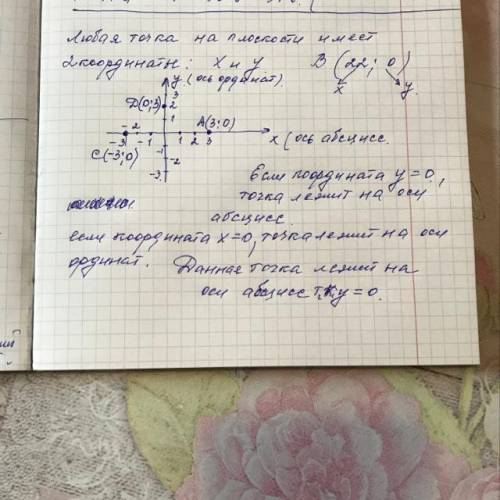 Любая точка на плоскости имеет
2 координаты: x и y B (22; 0)
x y
y (ось ординат).
3
D(0;3) 2
1 A(3;0)
-3 -2 -1 1 2 3 x (ось абсцисс.
C(-3;0) -1
-2
-3
Если координата y=0,
точка лежит на оси
абсцисс.
если координата x=0, точка лежит на оси
ординат. Данная точка лежит на
оси абсцисс т.к y=0.